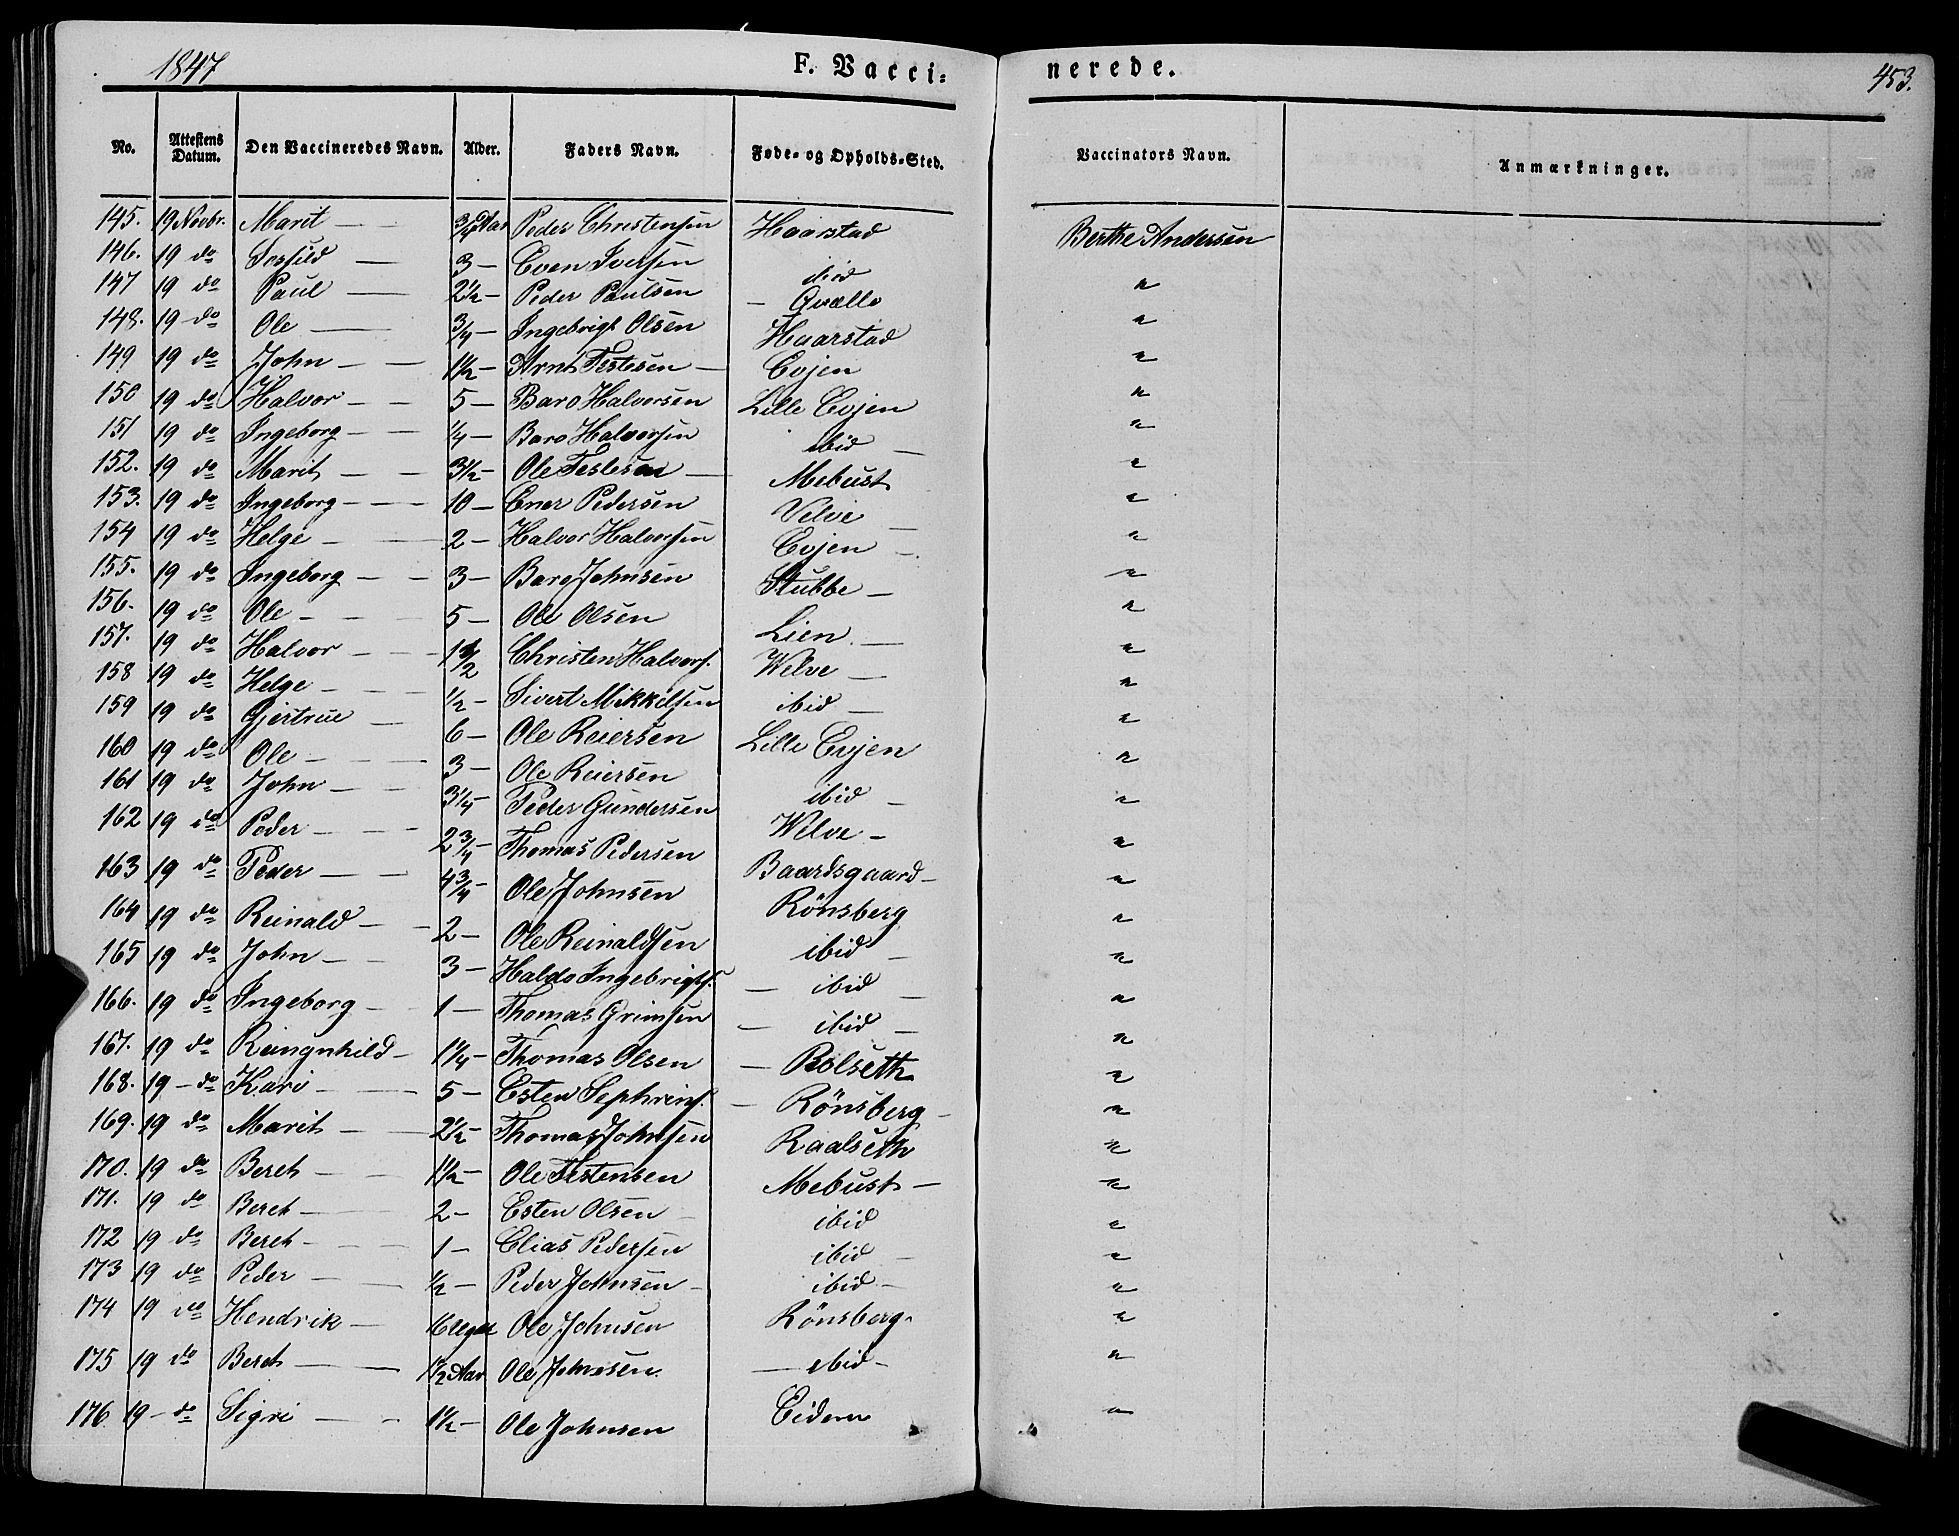 1847
F. Vacci-
nerede.
453.
No. Attestens Datum. Den Vaccineredes Navn. Alder. Faders Navn. Føde- og Opholds-Sted. Vaccinators Navn. Anmærkninger.
145. 19 Novbr. Marit — 3/4 Aar Peder Christensen Haarstad Berthe Andersen
146. 19 do — 3 — Even Iversen ibid "
147 19 do Paul — 2 1/2 — Peder Paulsen — Qvælle "
148. 19 do Ole — 3/4 — Ingebrigt Olsen Haarstad "
149 19 do John — 1 1/2 — Arnt Estesen — Evjen "
150 19 do Halvor — 5 — Baro Halvorsen Lille Evjen "
151 19 do Ingeborg — 1/4 — Baro Halvorsen ibid — "
152. 19 do Marit — 3 1/2 — Ole Estesen — Mebust "
153. 19 do Ingeborg — 10 — Ener Pedersen Velve — "
154 19 do Helge — 2 — Halvor Halvorsen Evjen — "
155. 19 do Ingeborg — 3 — Baro Johnsen Stubbe — "
156. 19 do Ole — 5 — Ole Olsen Lien — "
157. 19 do Halvor — 1 1/2 Christen Halvors. Welve — "
158 19 do Helge — 1/2 — Sivert Mikkelsen ibid — "
159 19 do Gjertrue — 6 — Ole Reiersen Lille Evjen "
160 19 do Ole — 3 — Ole Reiersen ibid — "
161 19 do John — 3 1/4 — Peder Gundersen Welve — "
162 19 do Peder — 2 3/4 — Thomas Pedersen Baardsgaard — "
163 19 do Peder — 4 3/4 — Ole Johnsen Rönsberg "
164 19 do Reinald — 2 — Ole Reinaldsen ibid — "
165 19 do John — 3 — Haldo Ingebrigts. — ibid — "
166. 19 do Ingeborg — 1 — Thomas Grimsen — ibid — "
167. 19 do Reingnhild — 1 1/4 — Thomas Olsen — Rolseth "
168. 19 — do Kari — 5 — Esten Sephrins. — Rönsberg — "
169. 19 do Marit — 2 1/2 — Thomas Johnsen Raalseth "
170. 19 do Bereth — 1 1/2 — Ole Estensen Mebust — "
171. 19 do Bereth — 2 — Esten Olsen — ibid "
172 19 do Bereth — 1 — Elias Pedersen ibid — "
173 19 do Peder — 1/2 — Peder Johnsen — ibid — "
174 19 do Hendrik — 6 Uger Ole Johnsen Rönsberg. "
175 19 do Bereth — 1 1/2 Aar Ole Johnesen. — ibid — "
176 19 — do Sigri — 1 1/2 — Ole Johnsen Eidem "